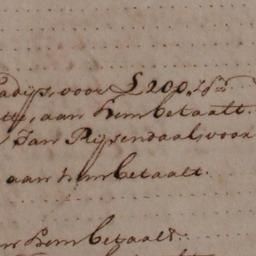 voor £ 200,
aan hem betaalt.
Jan Rijsendaal, voor
aan hem betaalt.
hem betaalt.